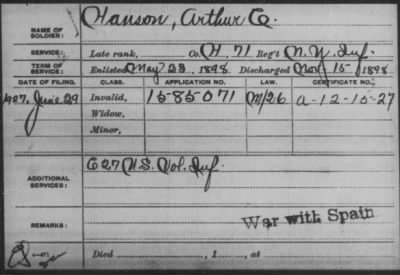 NAME OF SOLDIER: Hanson, Arthur C.
SERVICE: Late rank, Co. H, 71 Reg't N.Y. Inf.
TERM OF SERVICE: Enlisted May 23, 1898, Discharged Nov 15, 1898
DATE OF FILING. CLASS. APPLICATION NO. LAW. CERTIFICATE NO.
1927, June 29 Invalid, 1585071 M/26 A-12-15-27
Widow,
Minor,
ADDITIONAL SERVICES: C 27 U.S. Vol. Inf.
REMARKS: War with Spain
Died , 1 , at